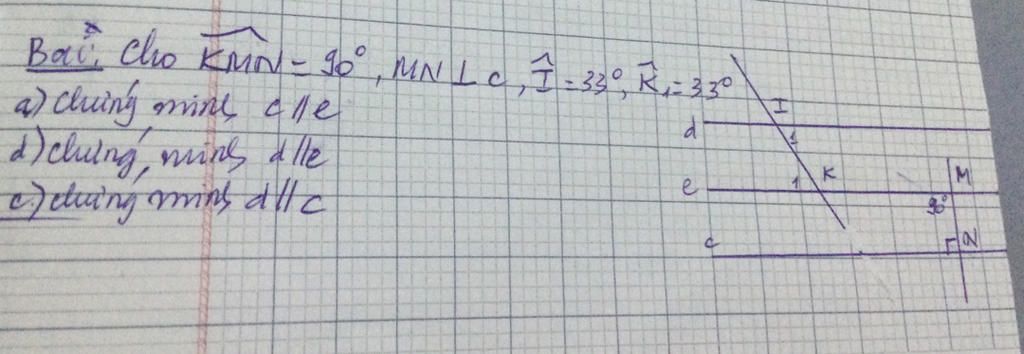 Bài: Cho KMN = 90°, MN ⊥ c, Î = 33°, K̂₁ = 33°
a) chứng minh c // e
d) chứng minh d // e
c) chứng minh d // c
I
d
1
K
1
e
M
90°
c
N